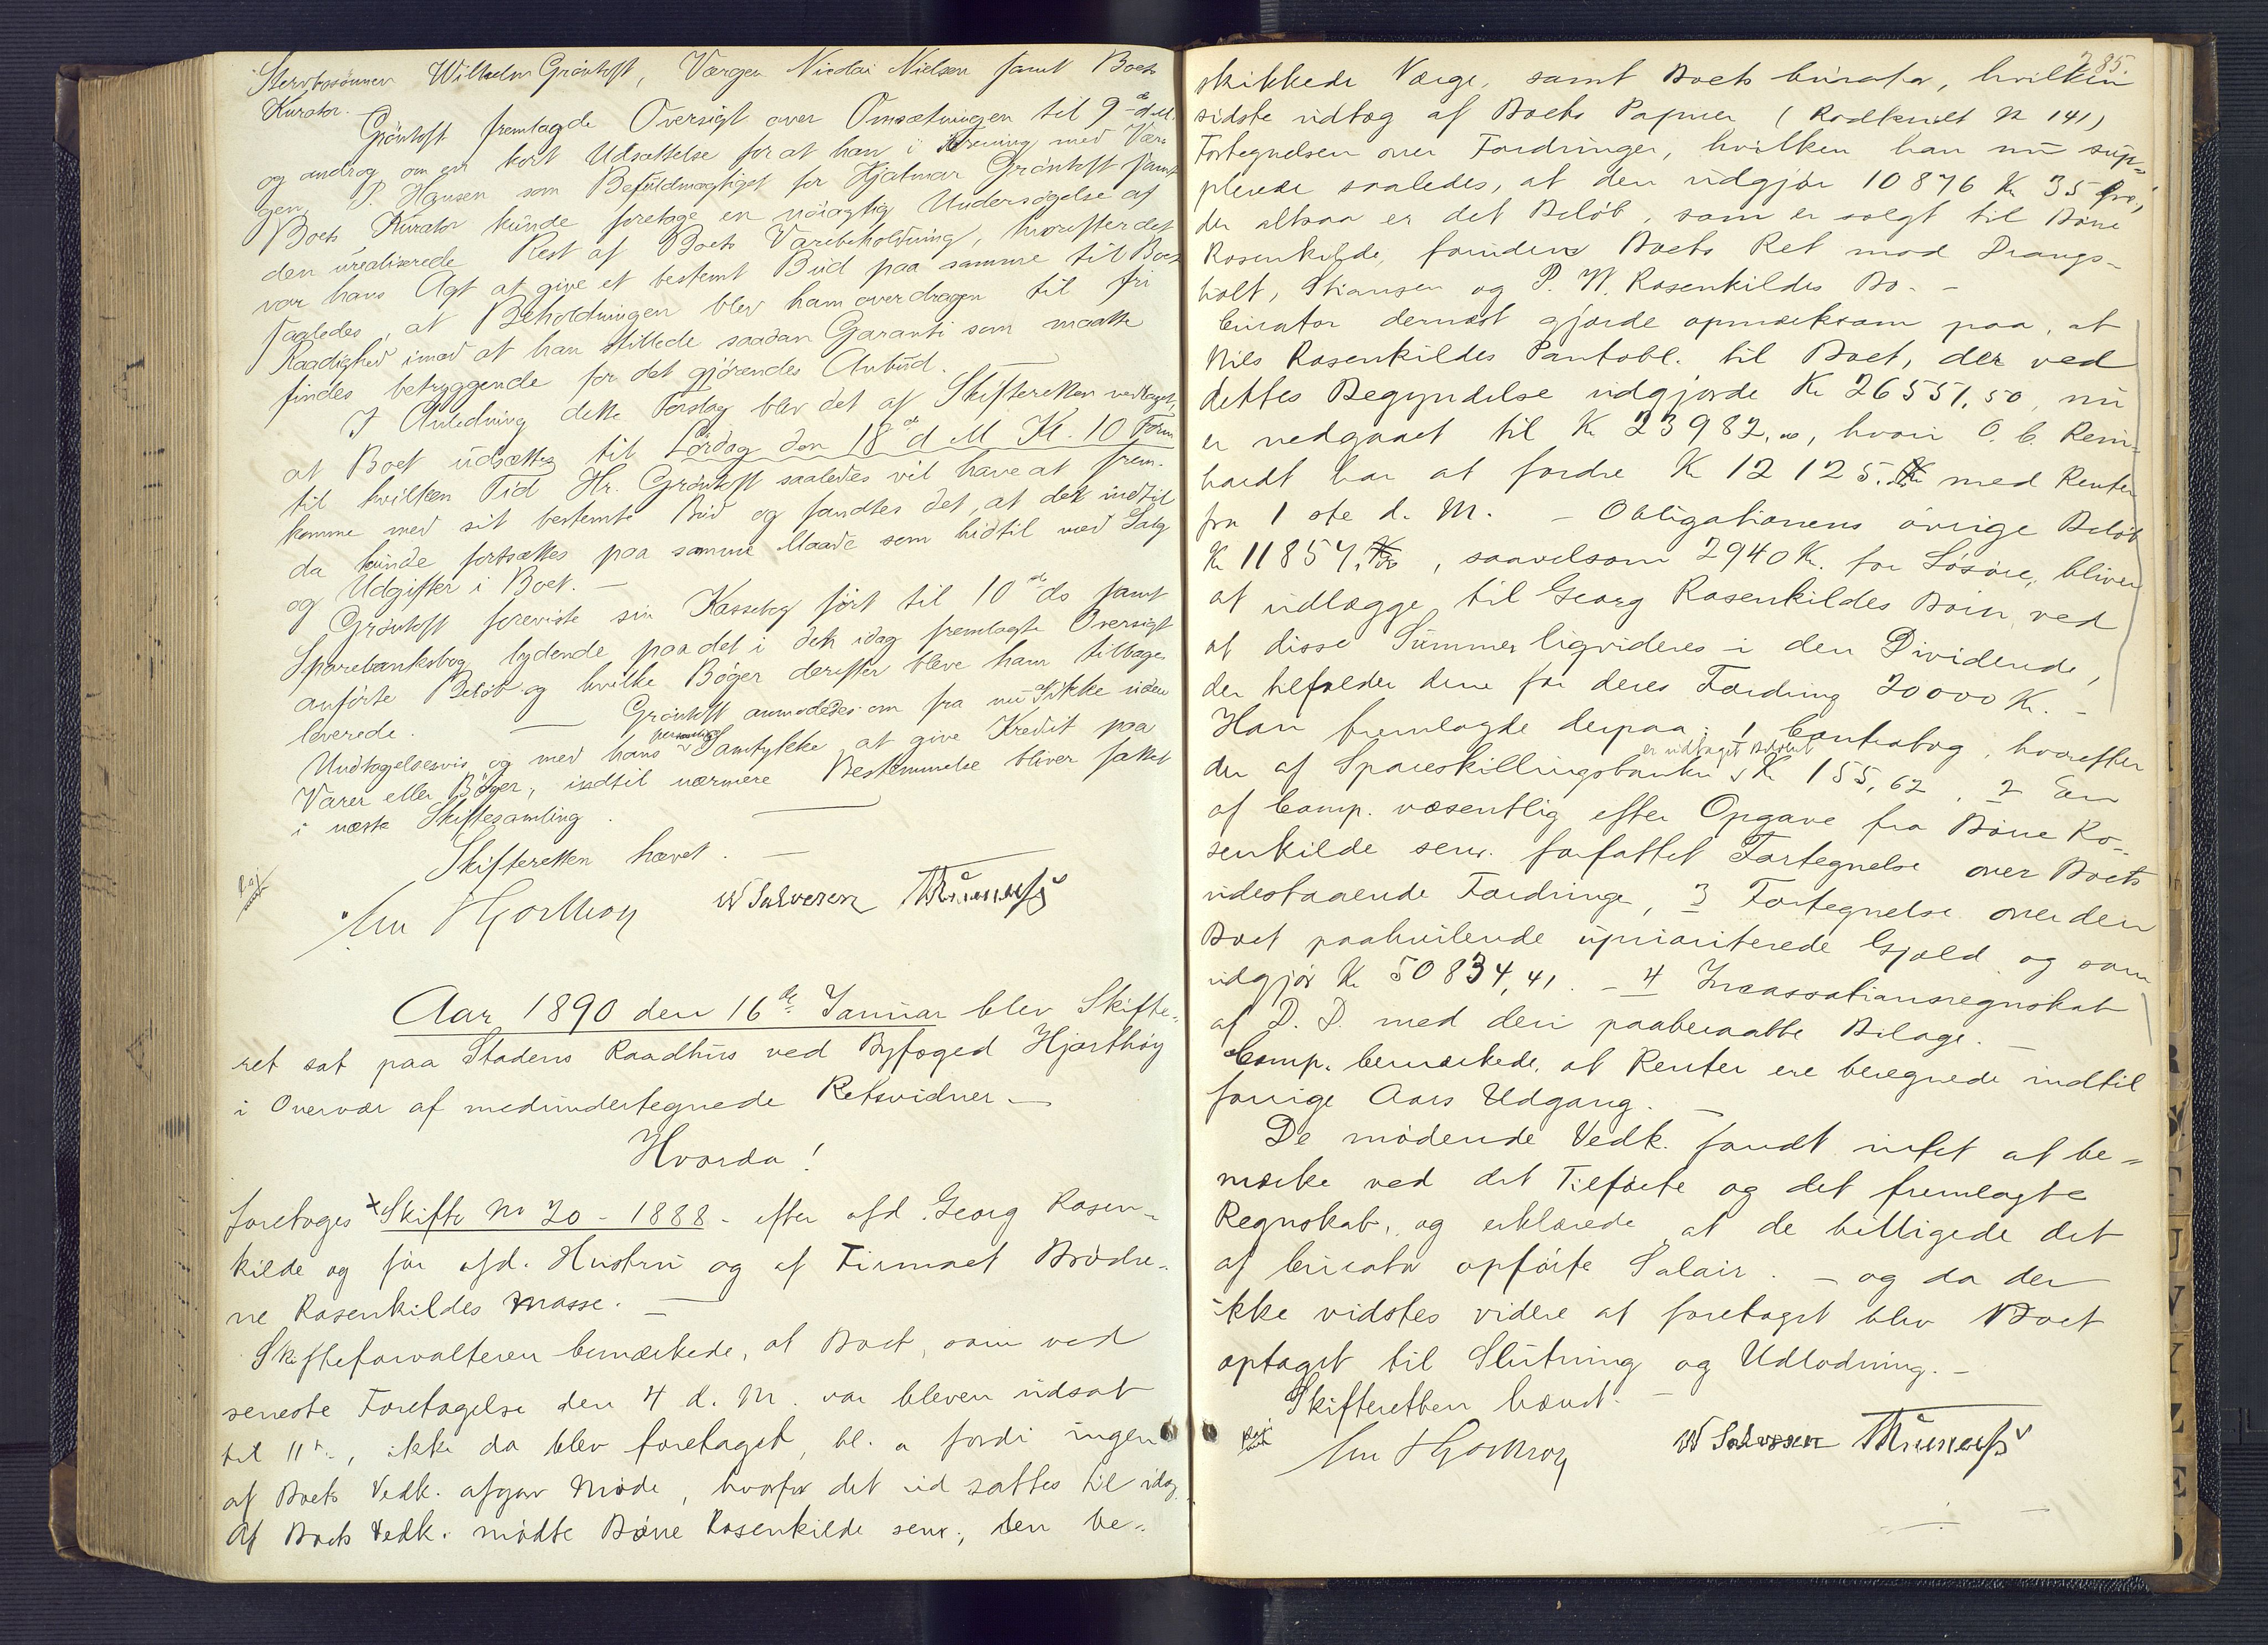 Stervbosønnen Wilhelm Grøntoft, Værgen Nicolai Nielsen samt Boets
Kurator. —
Grøntoft fremlagde Oversigt over Omsætningen til 9de d.M.
og androg om en kort Udsættelse for at han i Forening med Vær-
gen, P. Hansen som Befuldmægtiget for Hjalmar Grøntoft samt
Boets Kurator kunde foretage en nöiagtig Undersøgelse af
den urealiserede Rest af Boets Varebeholdning, hvorefter det
var hans Agt at give et bestemt Bud paa samme til Boet
saaledes, at Beholdningen blev ham overdragen til fri
Raadighed imod at han stillede saadan Garanti som maatte
findes betryggende for det gjørendes Anbud. —
I Anledning dette Forslag blev det af Skifteretten vedtaget,
at Boet udsættes til Lørdag den 18de d M Kl. 10 Form
til hvilken Tid Hr. Grøntoft saaledes vil have at frem-
komme med sit bestemte Bud og fandtes det, at det indtil
da kunde fortsættes paa samme Maade som hidtil med Salg
og Udgifter i Boet. —
Grøntoft foreviste sin Kassebog ført til 10de ds samt
Sparebanksbog lydende paa det i den idag fremlagte Oversigt
anførte Beløb og hvilke Bøger derefter bleve ham tilbage
leverede. — Grøntoft anmodedes om fra nu ikke uden
Undtagelsesvis og med hans Samtykke at give Kredit paa
Varer eller Bøger, indtil nærmere Bestemmelse bliver fattet
i næste Skiftesamling. —
Skifteretten hævet. —
W Salvesen
Aar 1890 den 16de Januar blev Skifte-
ret sat paa Stadens Raadhus ved Byfoged Hjorthøy
i Overvær af medundertegnede Retsvidner —
Hvorda!
foretoges Skifte No 20 - 1888 - efter afd. Georg Rosen-
kilde og før afd. Hustru og af Firmaet Brødre-
ne Rosenkildes Masse. —
Skifteforvalteren bemærkede, at Boet, som ved
seneste Foretagelse den 4 d. M. var bleven udsat
til 11te, ikke da blev foretaget, bl. a fordi ingen
af Boets Vedk. afgav Møde, hvorfor det udsattes til idag.
Af Boets Vedk. mødte Børre Rosenkilde senr., den be-
285.
skikkede Værge, samt Boets Curator, hvilken
sidste udtog af Boets Papirer (Rødkridt N 141)
Fortegnelsen over Fordringer, hvilken han nu sup-
plerede saaledes, at den udgjør 10876 Kr 35 Øre,
der altsaa er det Beløb, som er solgt til Børre
Rosenkilde, foruden Boets Ret mod Drangs-
holt, Stiansen og P. W. Rosenkildes Bo. —
Curator dernæst gjorde opmærksom paa, at
Nils Rosenkildes Pantobl. til Boet, der ved
dettes Begyndelse udgjorde Kr 26551,50, nu
er nedgaaet til Kr 23982,00, hvori O. C. Rein-
hardt har at fordre Kr 12125. med Renter
fra 1ste d. M. — Obligationens øvrige Beløb
Kr 11857, , saavelsom 2940 Kr. for Løsøre, bliver
at udlægge til Georg Rosenkildes Børn, ved
at disse Summer ligvideres i den Dividende,
der tilfalder dem for deres Fordring 20000 Kr. —
Han fremlagde derpaa: 1 Contrabog, hvorefter
der af Spareskillingsbanken er udtaget Beløbet Kr 155,62. 2 En
af Comp. væsentlig efter Opgave fra Børre Ro-
senkilde senr. forfattet Fortegnelse over Boets
udestaaende Fordringer, 3 Fortegnelse over den
Boet paahvilende uprioriterede Gjæld og som
udgjør Kr 50834,41. — 4 Incassationsregnskab
af D. D. med deri paaberaabte Bilage. —
Comp. bemærkede, at Renter ere beregnede indtil
forrige Aars Udgang. —
De mødende Vedk. fandt intet at be-
mærke ved det Tilførte og det fremlagte
Regnskab, og erklærede at de billigede det
af Curator opførte Salair. — og da der
ikke vidstes videre at foretaget blev Boet
optaget til Slutning og Udlodning. —
Skifteretten hævet. —
W Salvesen